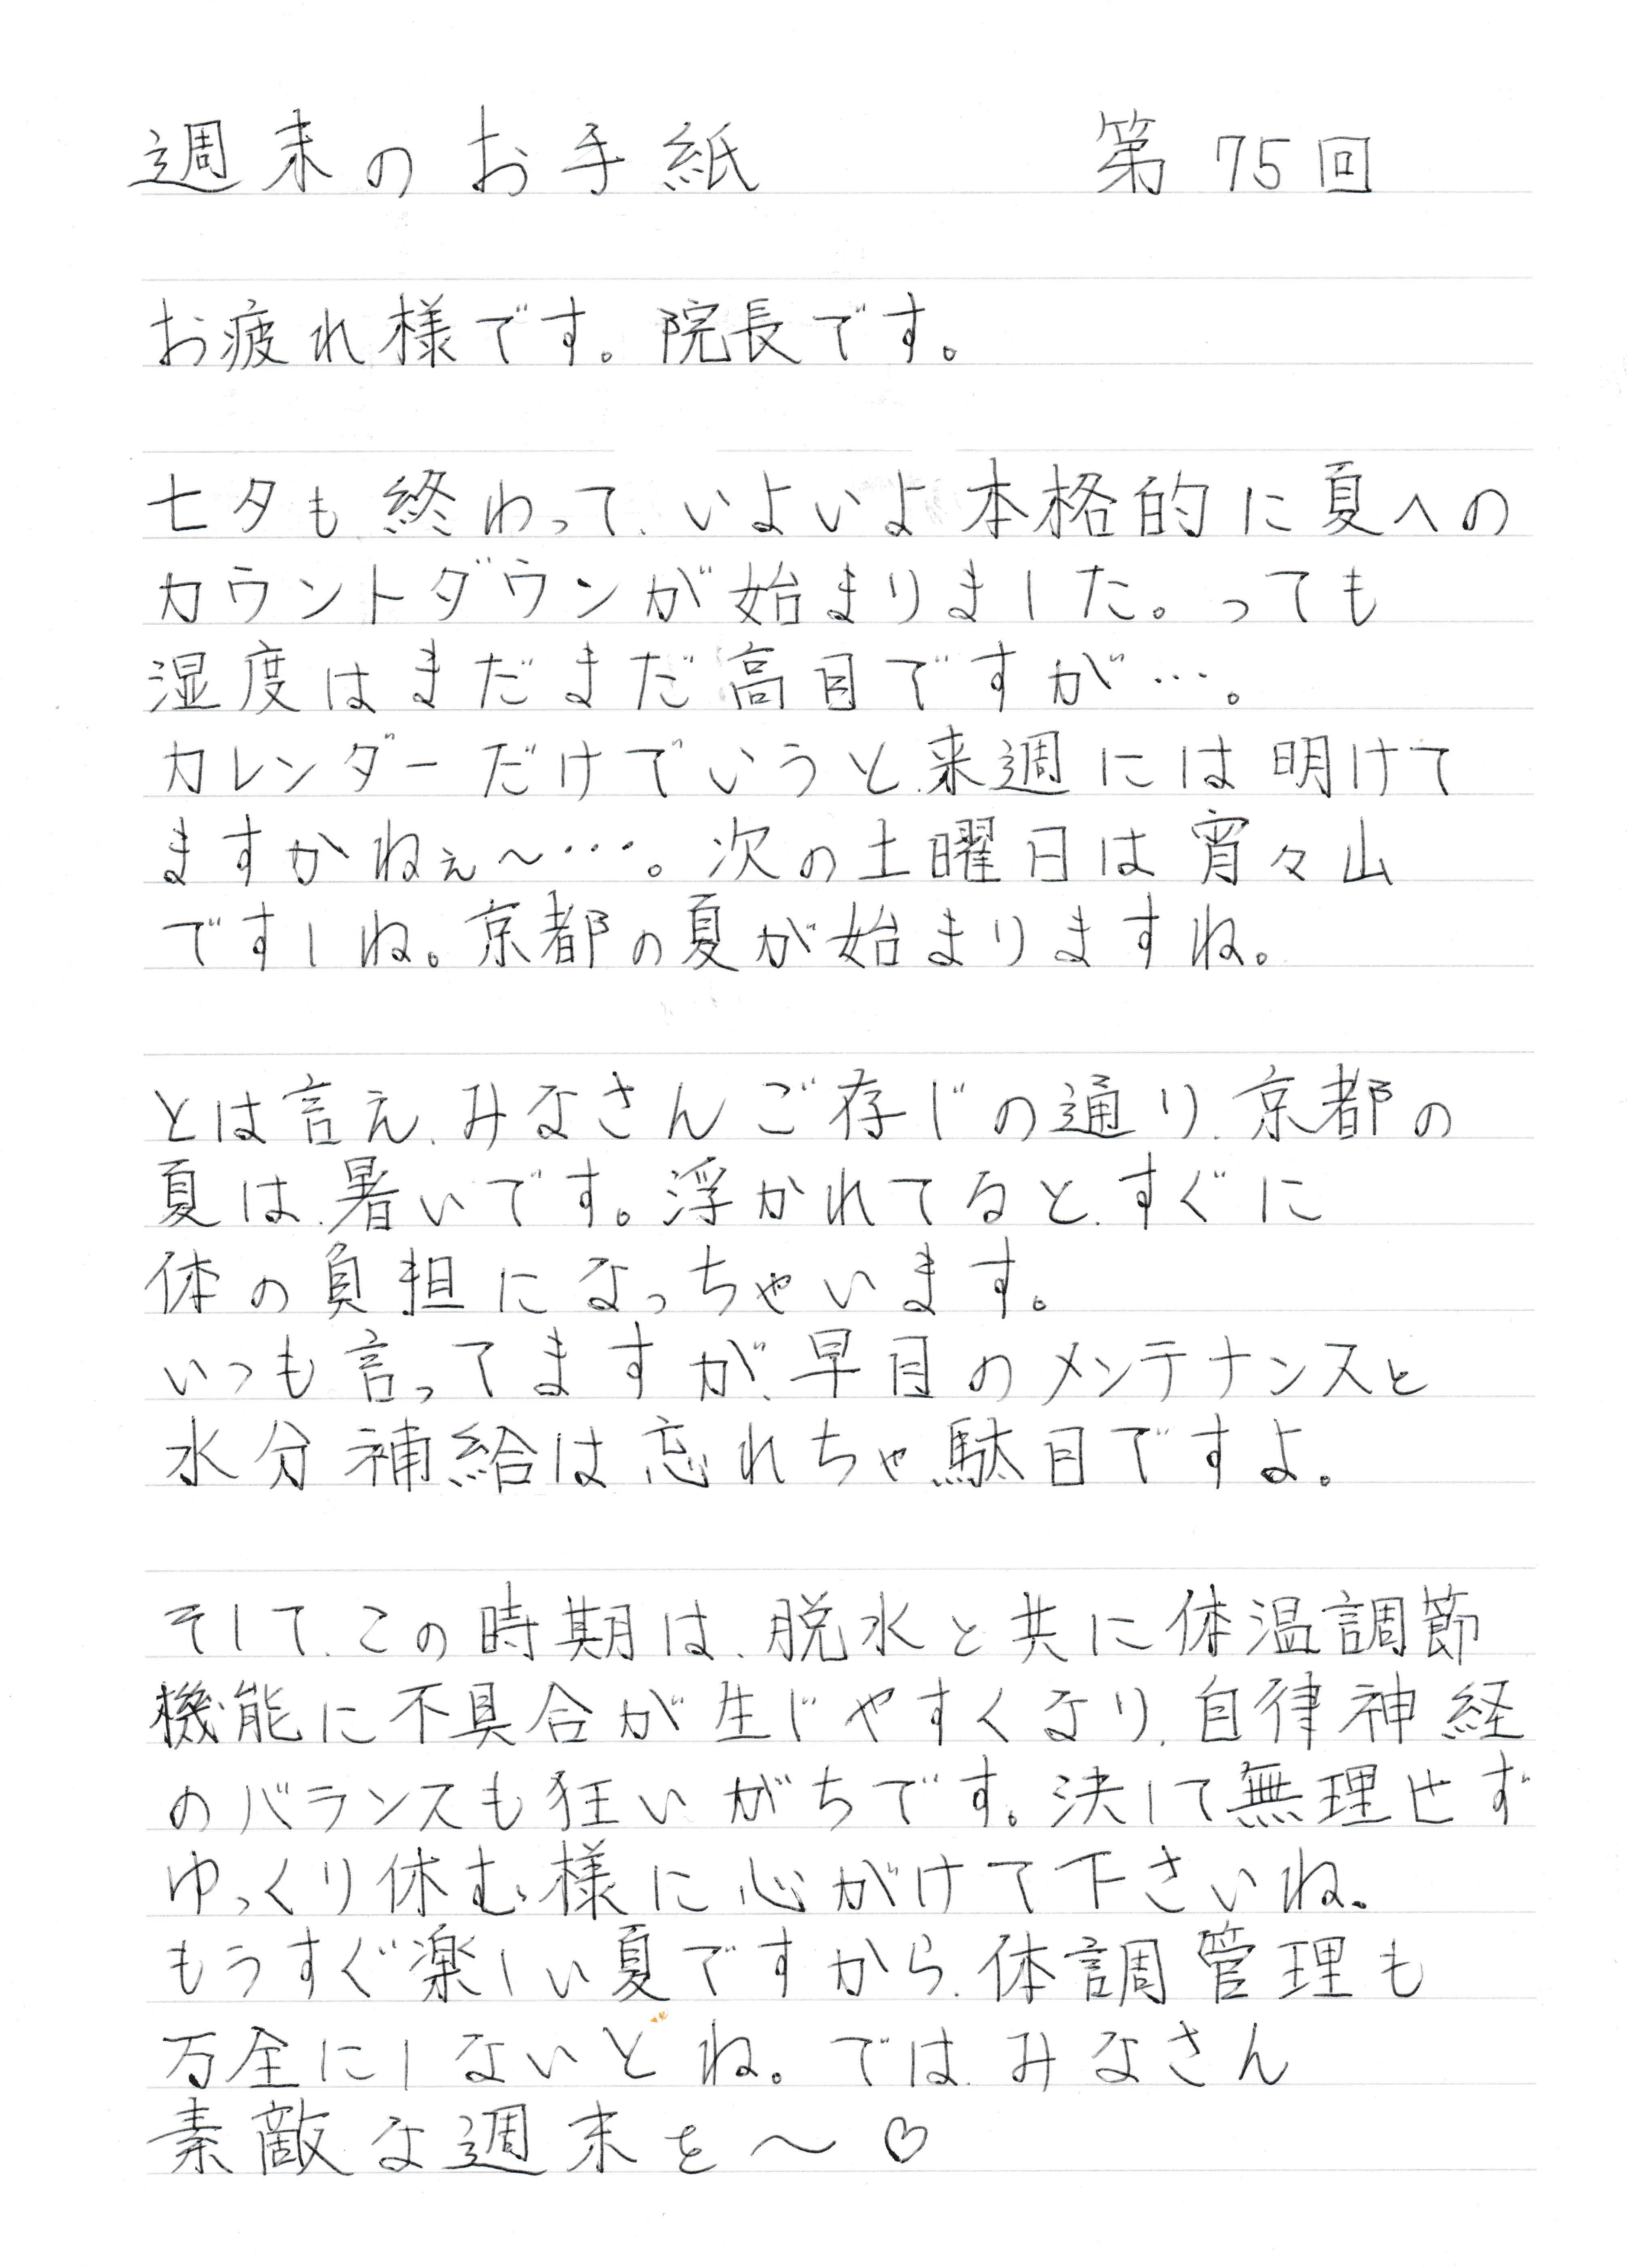 週末のお手紙 第75回
お疲れ様です。院長です。
七夕も終わって、いよいよ本格的に夏への
カウントダウンが始まりました。っても
湿度はまだまだ高目ですが…。
カレンダーだけでいうと、来週には明けて
ますかねぇ〜…。次の土曜日は宵々山
ですしね。京都の夏が始まりますね。
とは言え、みなさんご存じの通り、京都の
夏は、暑いです。浮かれてると、すぐに
体の負担になっちゃいます。
いつも言ってますが、早目のメンテナンスと
水分補給は忘れちゃ駄目ですよ。
そして、この時期は、脱水と共に体温調節
機能に不具合が生じやすくなり、自律神経
のバランスも狂いがちです。決して無理せず
ゆっくり休む様に心がけて下さいね。
もうすぐ楽しい夏ですから、体調管理も
万全にしないとね。では、みなさん
素敵な週末を〜♡